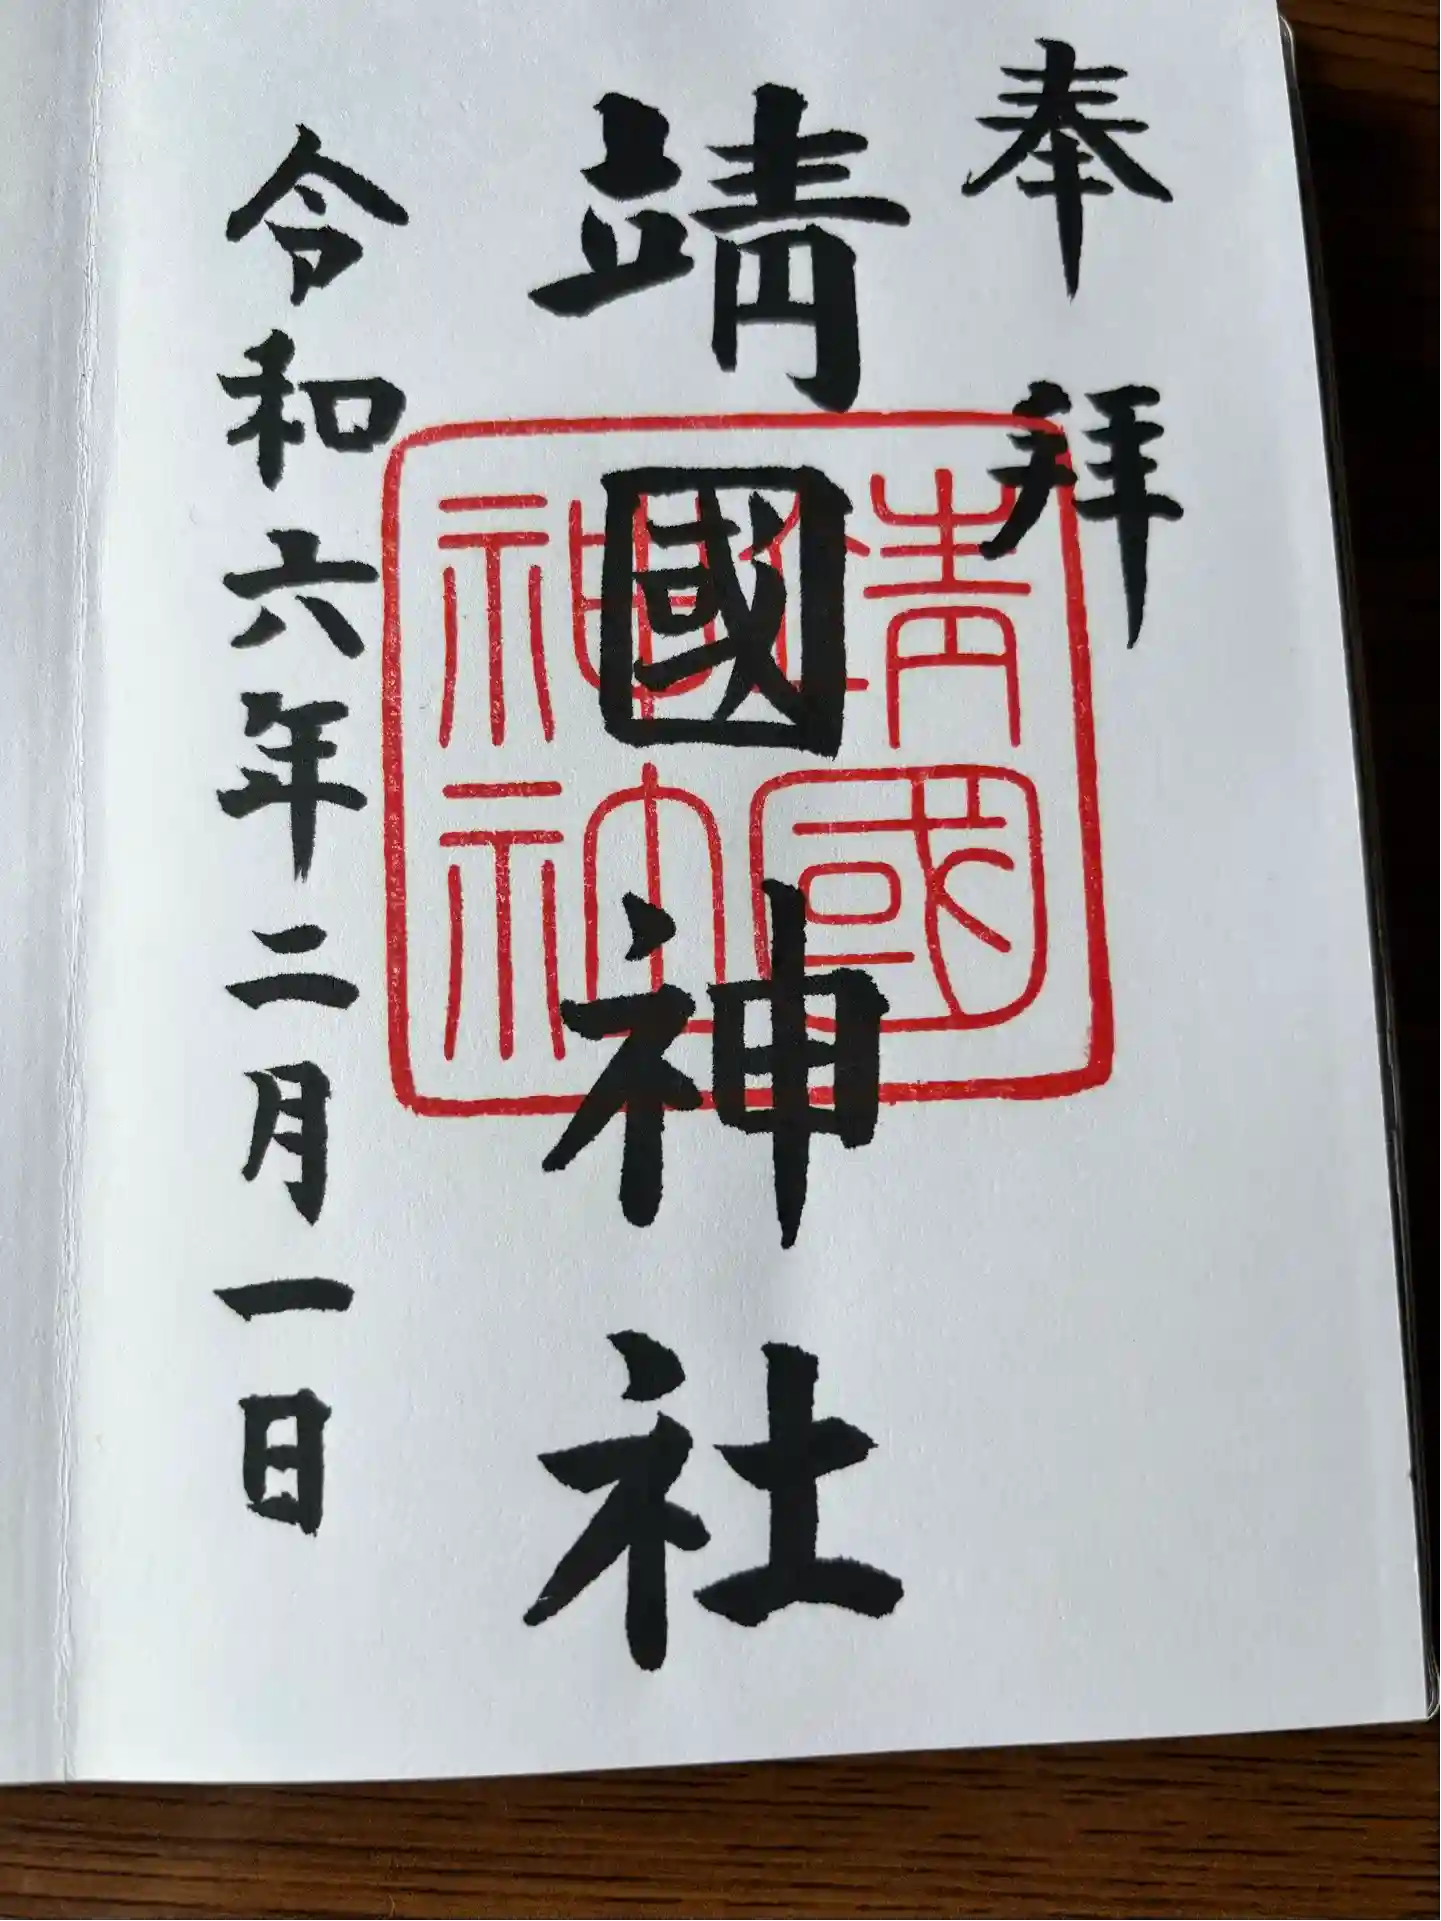 奉拜
靖國神社
靖國
神社
令和六年二月一日